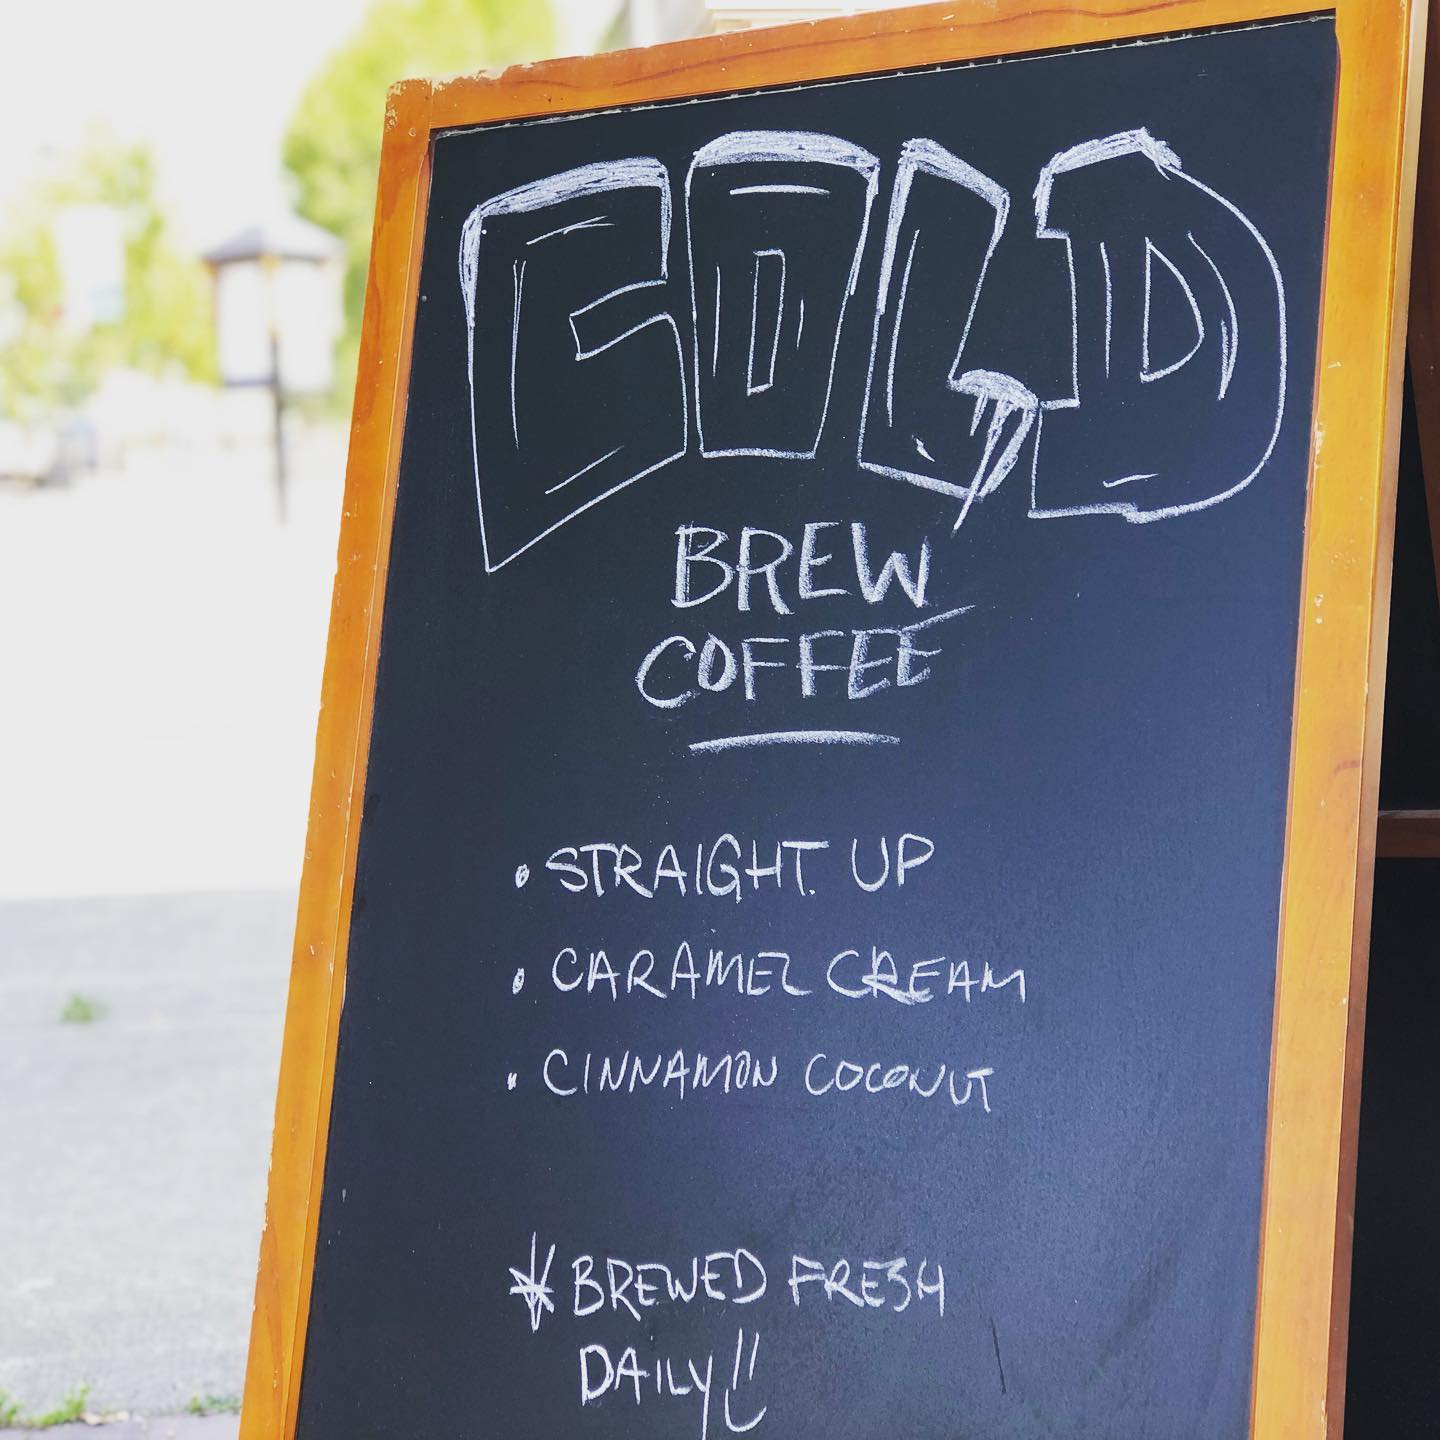 COLD
BREW
COFFEE
• STRAIGHT UP
• CARAMEL CREAM
• CINNAMON COCONUT
* BREWED FRESH
DAILY!!